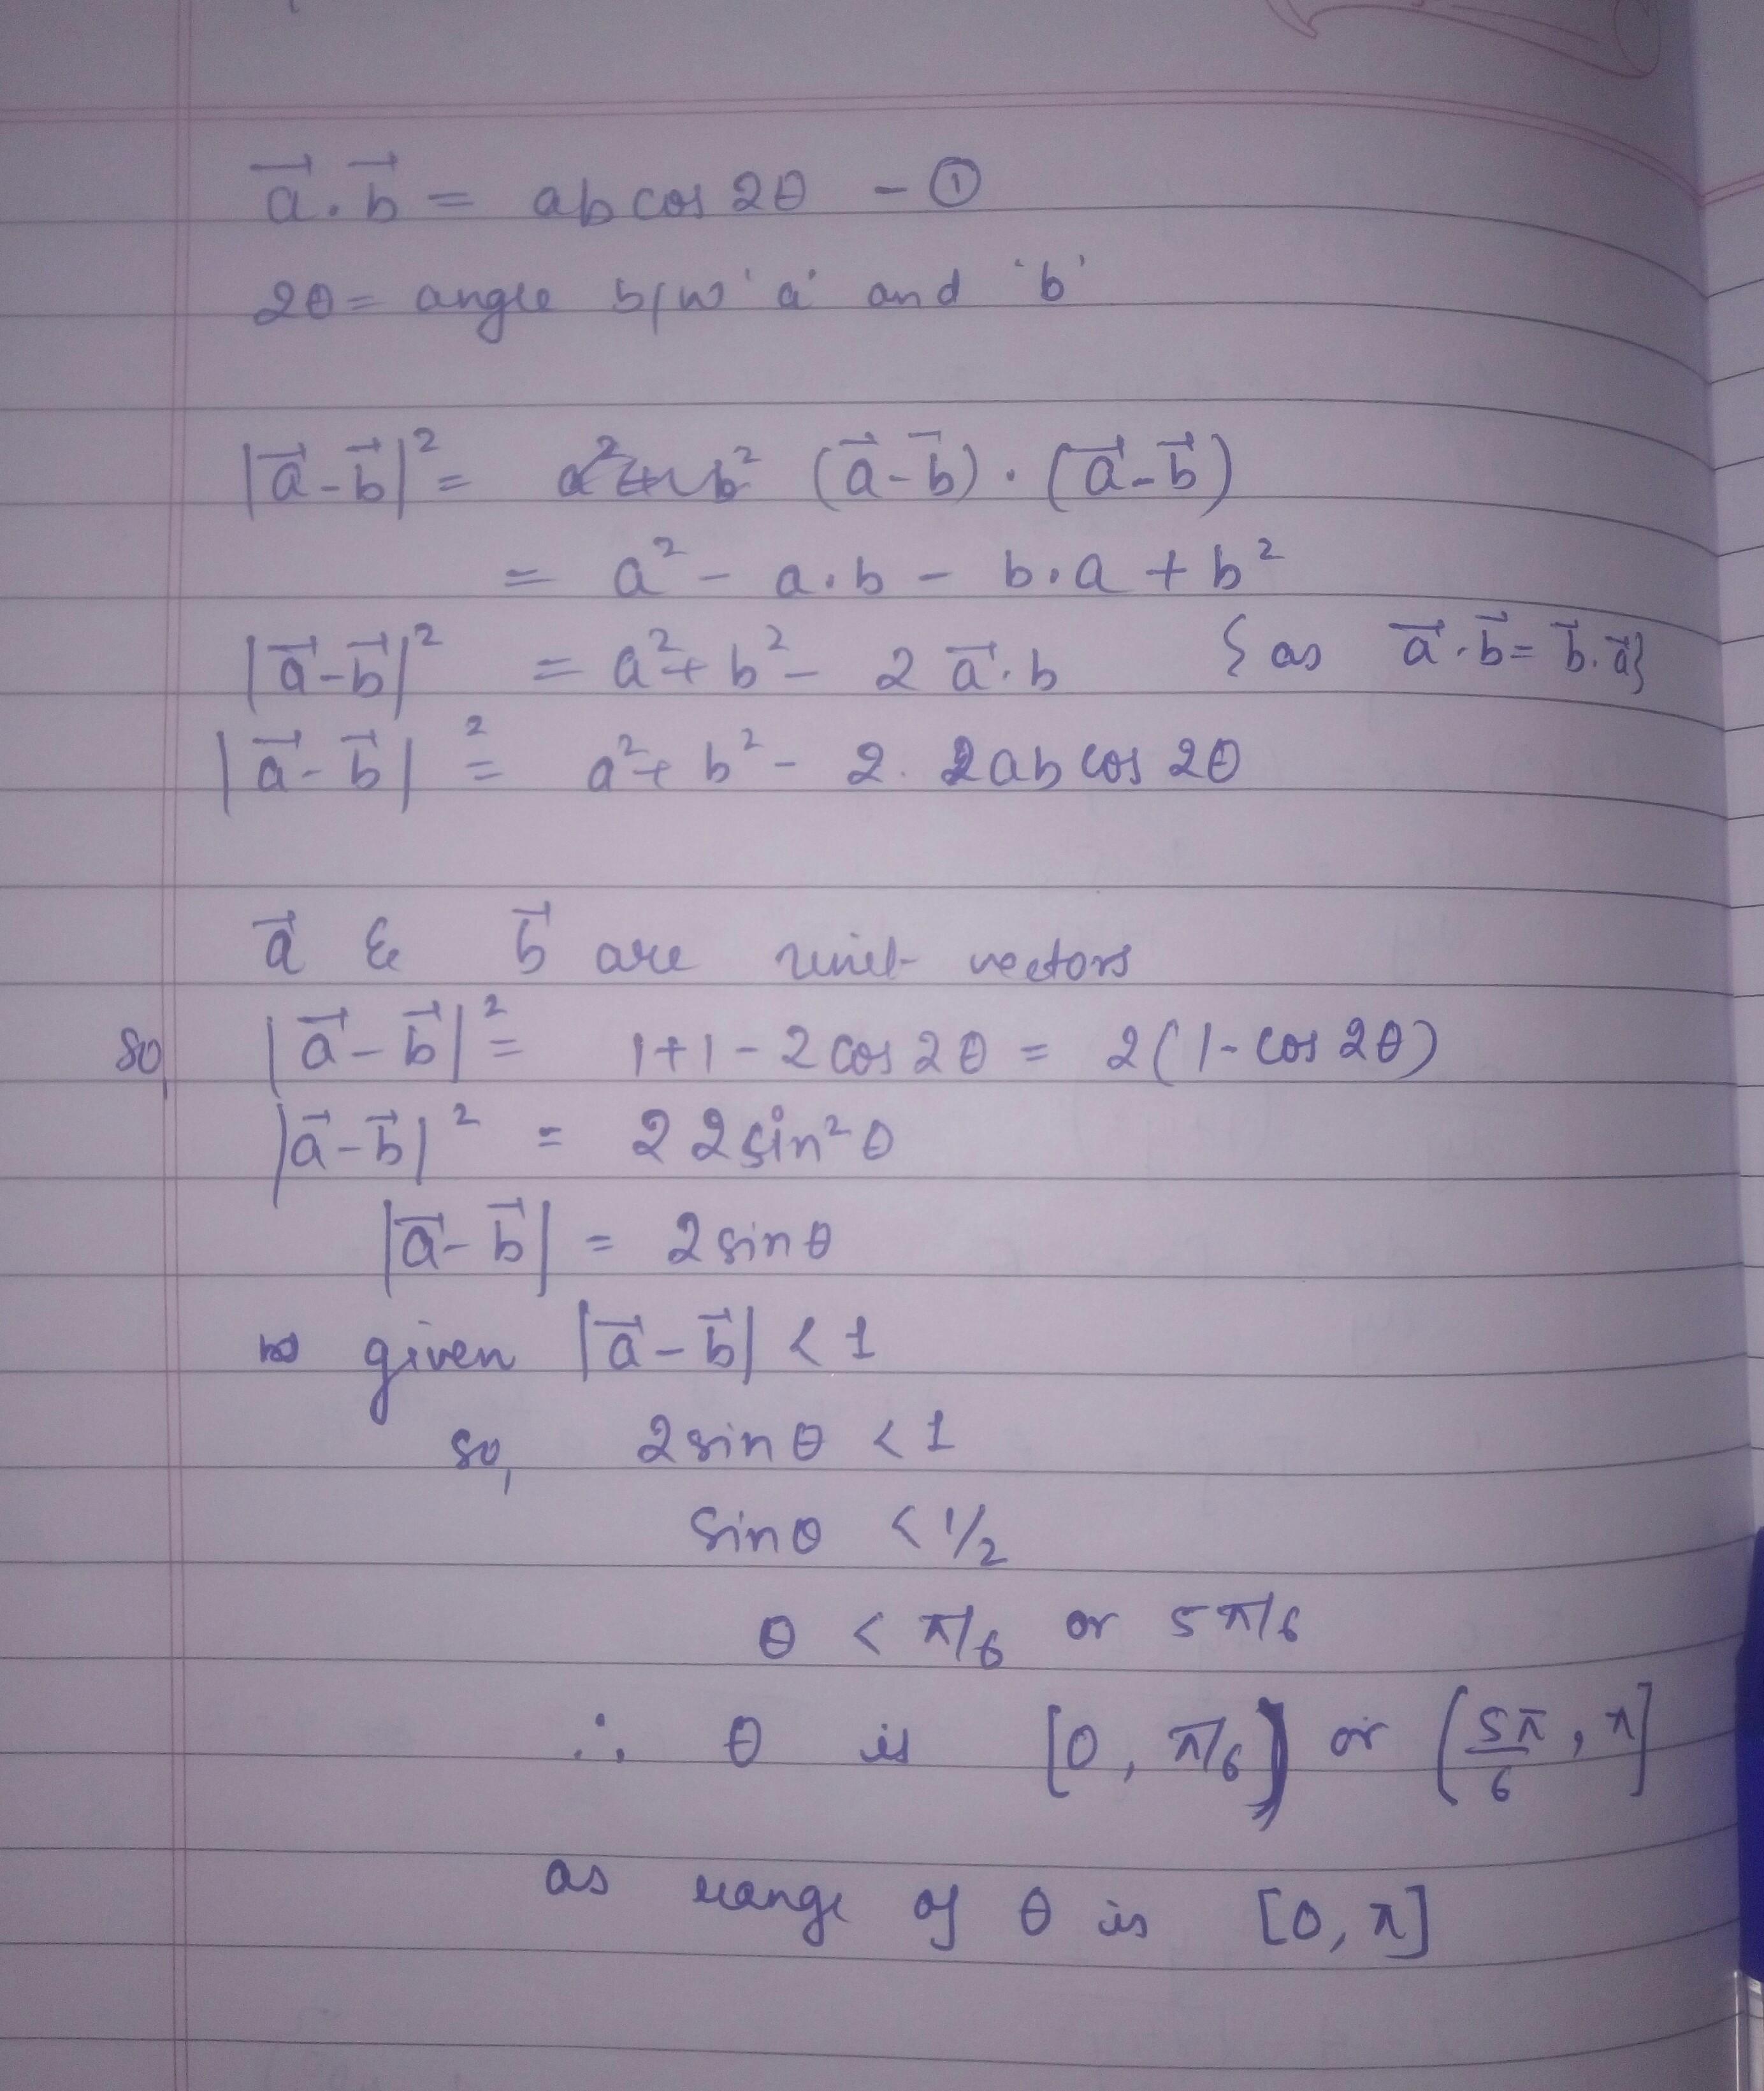 a⃗.b⃗ = ab cos 2θ - ①
2θ = angle b/w 'a' and 'b'
|a⃗-b⃗|² = (a⃗-b⃗)·(a⃗-b⃗)
= a² - a.b - b.a + b²
|a⃗-b⃗|² = a²+b²- 2 a⃗.b {as a⃗.b⃗=b⃗.a⃗}
|a⃗-b⃗|² = a²+b²- 2. 2ab cos 2θ
a⃗ & b⃗ are unit vectors
so, |a⃗-b⃗|² = 1+1-2cos2θ = 2(1-cos2θ)
|a⃗-b⃗|² = 2 2sin²θ
|a⃗-b⃗| = 2sinθ
given |a⃗-b⃗| < 1
so, 2sinθ < 1
sinθ < 1/2
θ < π/6 or 5π/6
∴ θ is [0, π/6) or (5π/6, π]
as range of θ is [0, π]